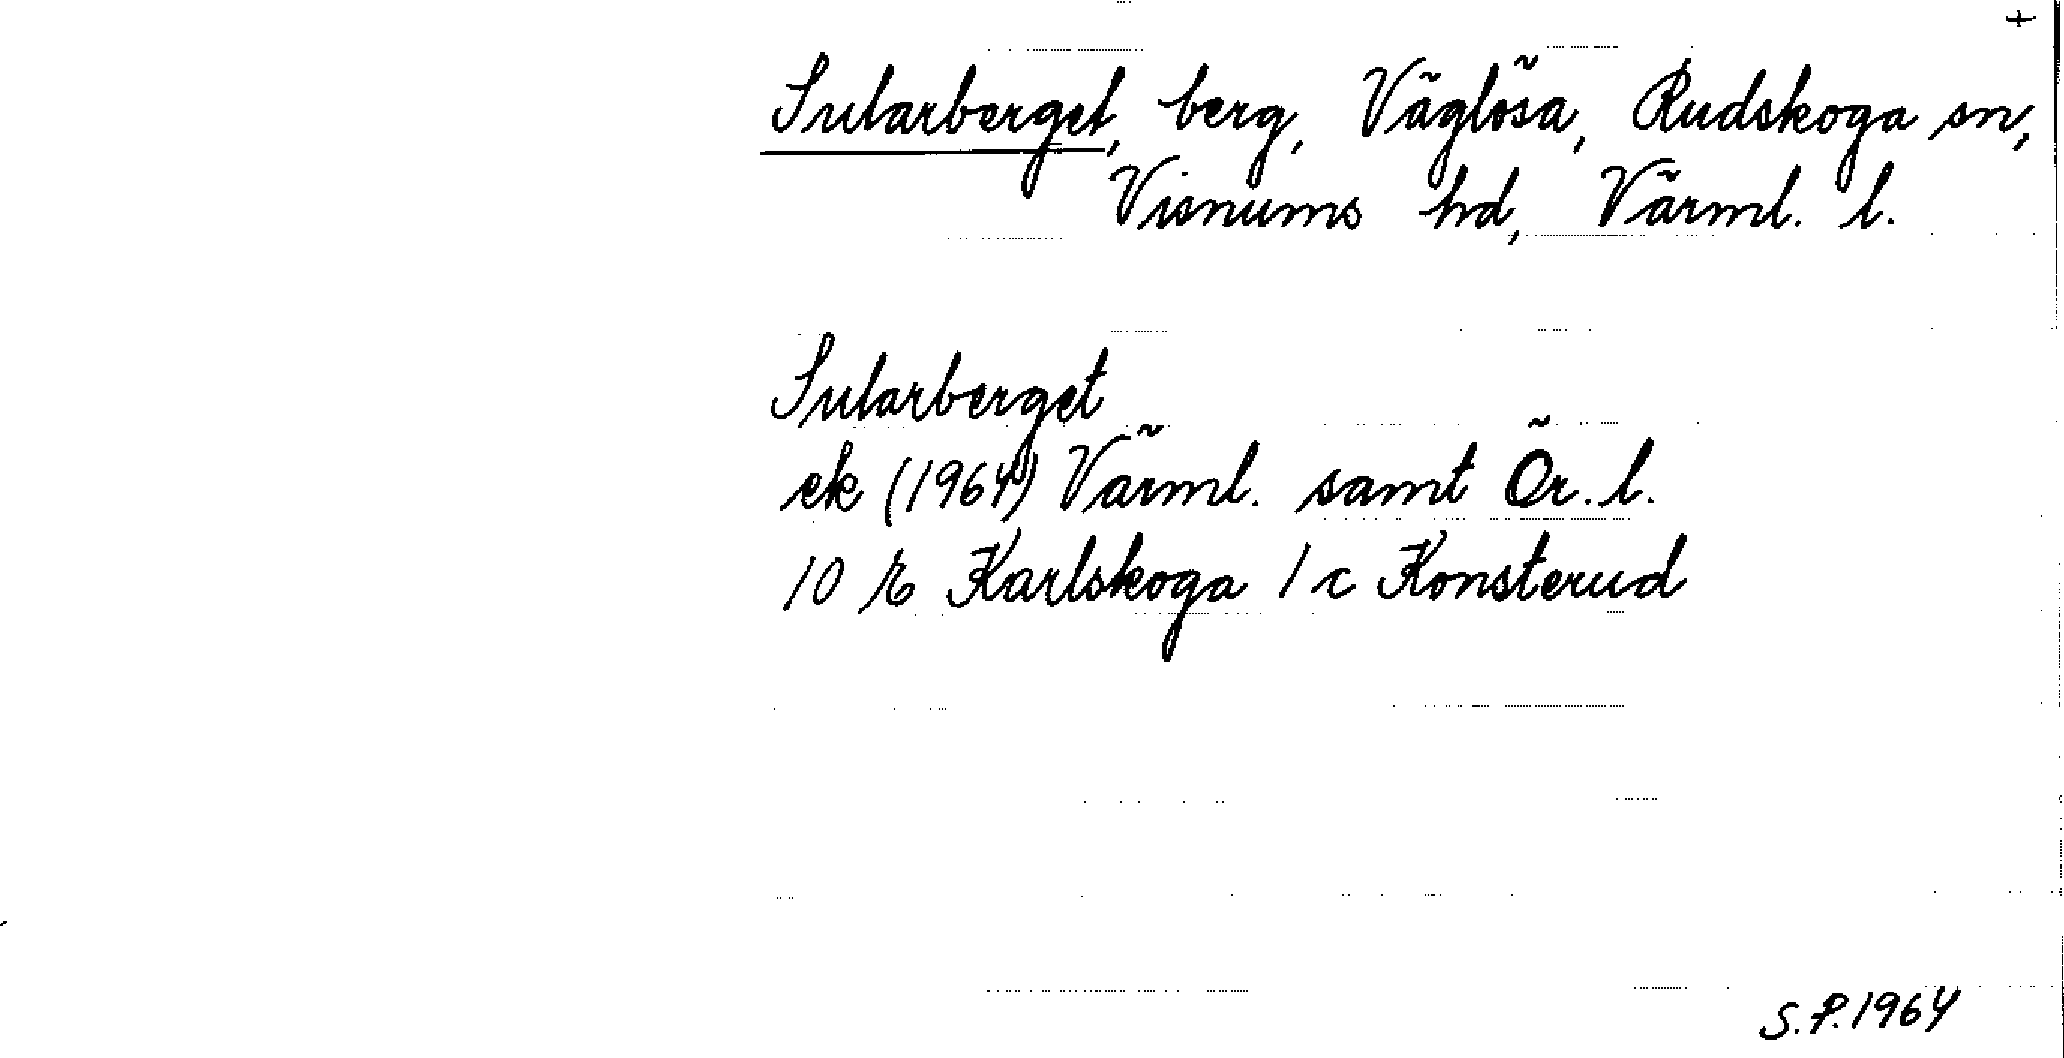 +
Sularberget, berg, Väglösa, Rudskoga sn,
Visnums hd, Värml. l.
Sularberget
ek (1964) Värml. samt Ör. l.
10 E Karlskoga 1 c Konsterud
S.P. 1964